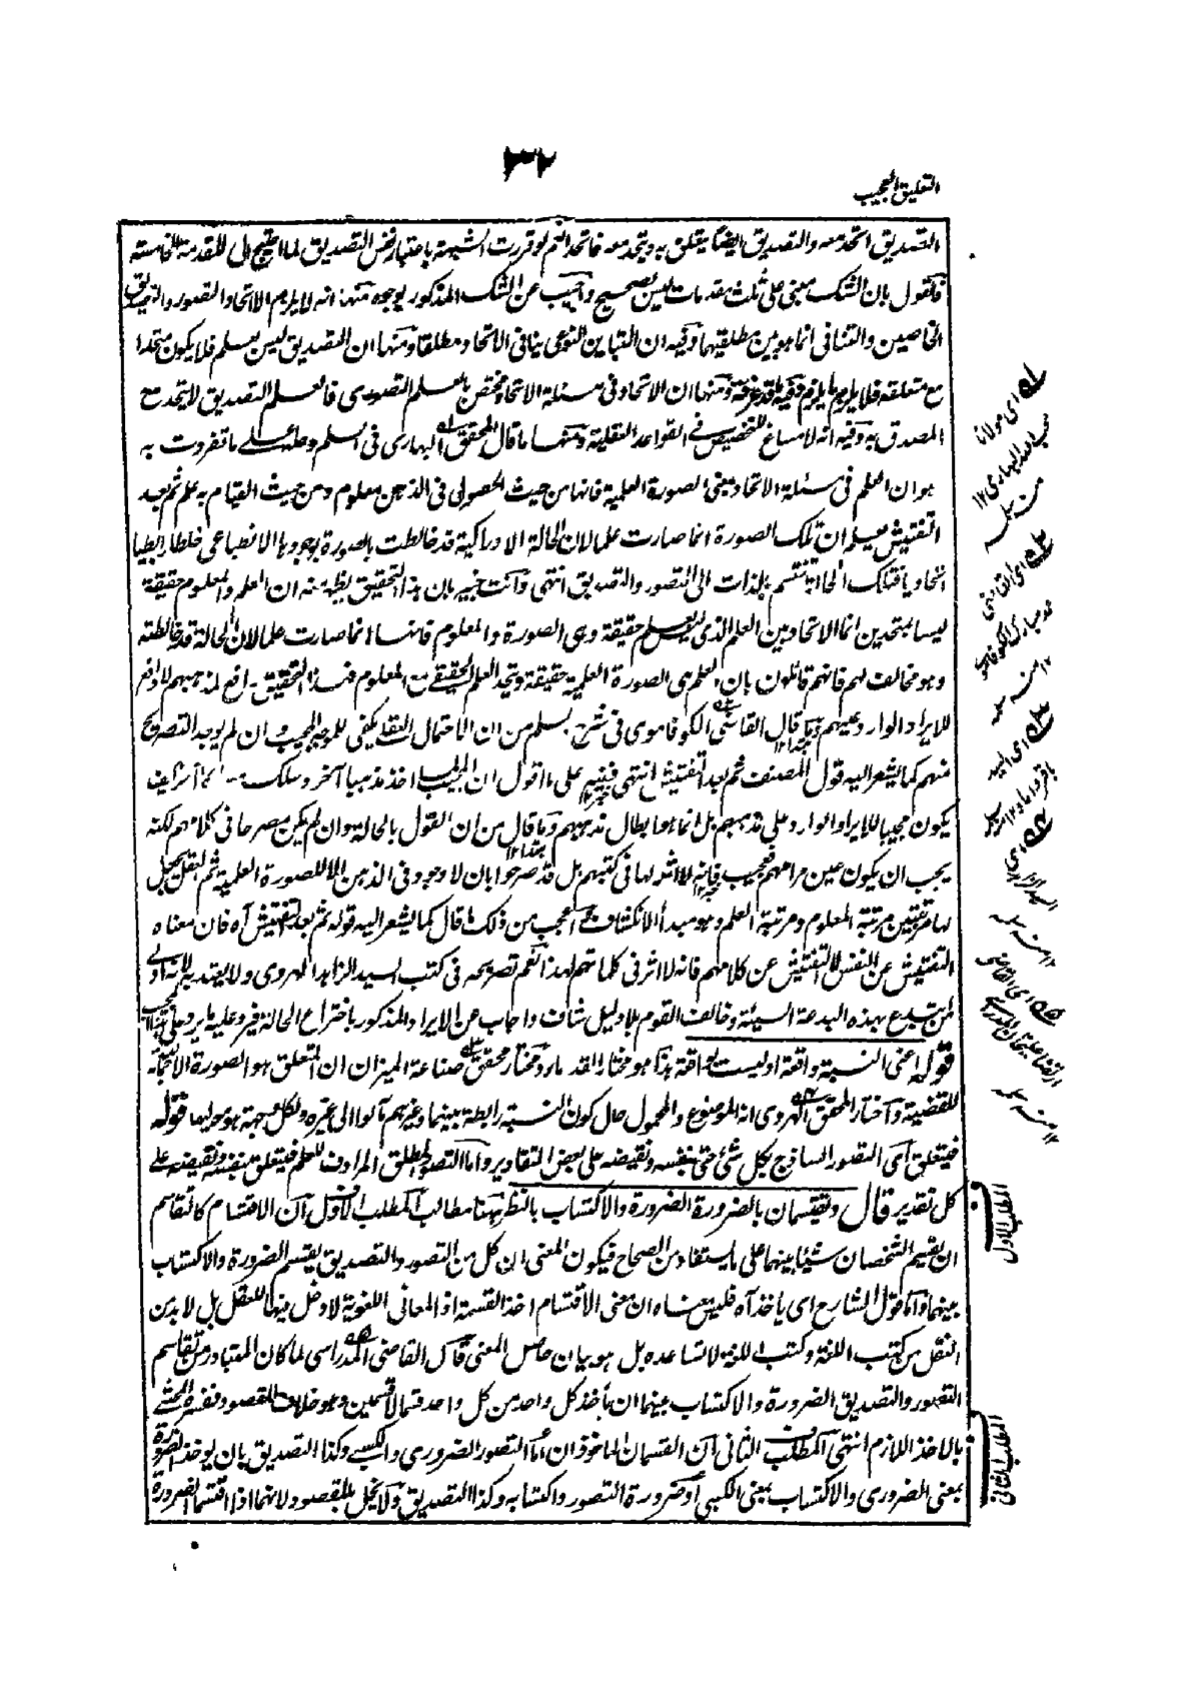 ٣٢
التعليق العجيب
التصديق اتحد معه والتصديق ايضا يتعلق به ويتحد معه فاتحدا نعم لو قررت الشبهة باعتبار نفس التصديق لما احتيج الى المقدمة الخامسة
فالقول بان الشك مبنى على ثلث مقدمات ليس بصحيح واجيب عن الشك المذكور بوجوه منها انه لا يلزم الا اتحاد التصور والتصديق
الخاصين والتنافى انما هو بين مطلقيهما وفيه ان التباين النوعى ينافى الاتحاد مطلقا ومنها ان التصديق ليس بعلم فلا يكون متحدا
مع متعلقه فلا يلزم ما يلزم وفيه ما قد عرفت ومنها ان الاتحاد فى مسئلة الاتحاد مختص بالعلم التصورى فالعلم التصديقى لا يتحد مع
المصدق به وفيه انه لا مساغ للتخصيص فى القواعد العقلية ومنها ما قال المحقق البهارى فى السلم وحله على ما تفردت به
هو ان العلم فى مسئلة الاتحاد بمعنى الصورة العلمية فانها من حيث الحصول فى الذهن معلوم ومن حيث القيام به علم ثم بعد
التفتيش يعلم ان تلك الصورة انما صارت علما لان الحالة الادراكية قد خالطت بالصورة بوجودها الانطباعى خلطا رابطيا
اتحاديا فتلك الحالة تنقسم بالذات الى التصور والتصديق انتهى وانت خبير بان هذا التحقيق يظهر منه ان العلم والمعلوم حقيقة
ليسا بمتحدين انما الاتحاد بين العلم الذى ليس بعلم حقيقة وهى الصورة والمعلوم فانها انما صارت علما لان الحالة قد خالطته
وهو مخالف لهم فانهم قائلون بان العلم هى الصورة العلمية حقيقة ويتحد العلم الحقيقى مع المعلوم فهذا التحقيق رافع لمذهبهم لا دافع
للايراد الوارد عليهم وما قال القاضى الكوفاموى فى شرح السلم من ان الاحتمال العقلى يكفى للموجه المجيب وان لم يوجد التصريح
منهم كما يشعر اليه قول المصنف ثم بعد التفتيش انتهى ففيه على ما اقول ان المجيب لما اخذ مذهبا آخر وسلك مسلكا آخر كيف
يكون مجيبا للايراد الوارد على مذهبهم بل انما هو ابطال مذهبهم وما قال من ان القول بالحالة وان لم يكن مصرحا فى كلامهم لكنه
يجب ان يكون عين مرامهم فعجيب فانه لا اثر لها فى كتبهم بل قد صرحوا بان لا وجود فى الذهن الا للصورة العلمية ثم العقل يحلل
لها مرتبتين مرتبة المعلوم ومرتبة العلم وهو مبدأ الانكشاف واعجب من ذلك ما قال كما يشعر اليه قوله ثم بعد التفتيش آه فان معناه
التفتيش عن النفس لا التفتيش عن كلامهم فانه لا اثر فى كلماتهم لهذا نعم تصريحه فى كتب السيد الزاهد الهروى ولا يعتد به لانه اول
من ابتدع بهذه البدعة السيئة وخالف القوم بلا دليل شاف واجاب عن الايراد المذكور باختراع الحالة فيرد عليه ما يرد على
قوله اعنى النسبة واقعة او ليست بواقعة هذا هو مختار القدماء ومختار محقق صناعة الميزان ان المتعلق هو الصورة الاجمالية
للقضية واختار المحقق الهروى انه الموضوع والمحمول حال كون النسبة رابطة بينهما وغيرهم مالوا الى غيره ولكل وجهة هو موليها قوله
فيتعلق اى التصور الساذج بكل شئ حتى بنفسه ونقيضه على بعض التقادير واما التصور المطلق المرادف للعلم فيتعلق بنفسه ونقيضه على
كل تقدير قال وتقتسمان بالضرورة الضرورة والاكتساب بالنظر ههنا مطالب المطلب الاول ان الاقتسام كالتقاسم
ان يقسم الشخصان شيئا بينهما على ما يستفاد من الصحاح فيكون المعنى ان كل من التصور والتصديق يقتسم الضرورة والاكتساب
بينهما واما قول الشارح اى يأخذ آه فليس معناه ان معنى الاقتسام اخذ القسمة اذ المعانى اللغوية لا دخل فيها للعقل بل لا بد من
النقل من كتب اللغة وكتب اللغة لا تساعده بل هو بيان حاصل المعنى قال القاضى المدراسى لما كان المتبادر من تقاسم
التصور والتصديق الضرورة والاكتساب بينهما ان يأخذ كل واحد من كل واحد قسما لا قسمين وهو خلاف المقصود فسره المحشى
بالاخذ اللازم انتهى المطلب الثانى ان القسمان الماخوذان اما التصور الضرورى والكسبى وكذا التصديق بان يوخذ الضرورة
بمعنى الضرورى والاكتساب بمعنى الكسبى او ضرورة التصور واكتسابه وكذا التصديق ولا يخل بالمقصود لانهما اذا اقتسما الضرورة
اى مولانا
محب الله البهارى ١٢
منه سلمه
اى القاضى
محمد مبارك الكوفاموى
١٢ منه سلمه
اى السيد
باقر داماد ١٢ منه سلمه
اى
السيد الزاهد الهروى
١٢ منه سلمه
اى القاضى
ارتضا عليخان المدراسى
١٢ منه سلمه
المطلب الاول
المطلب الثانى